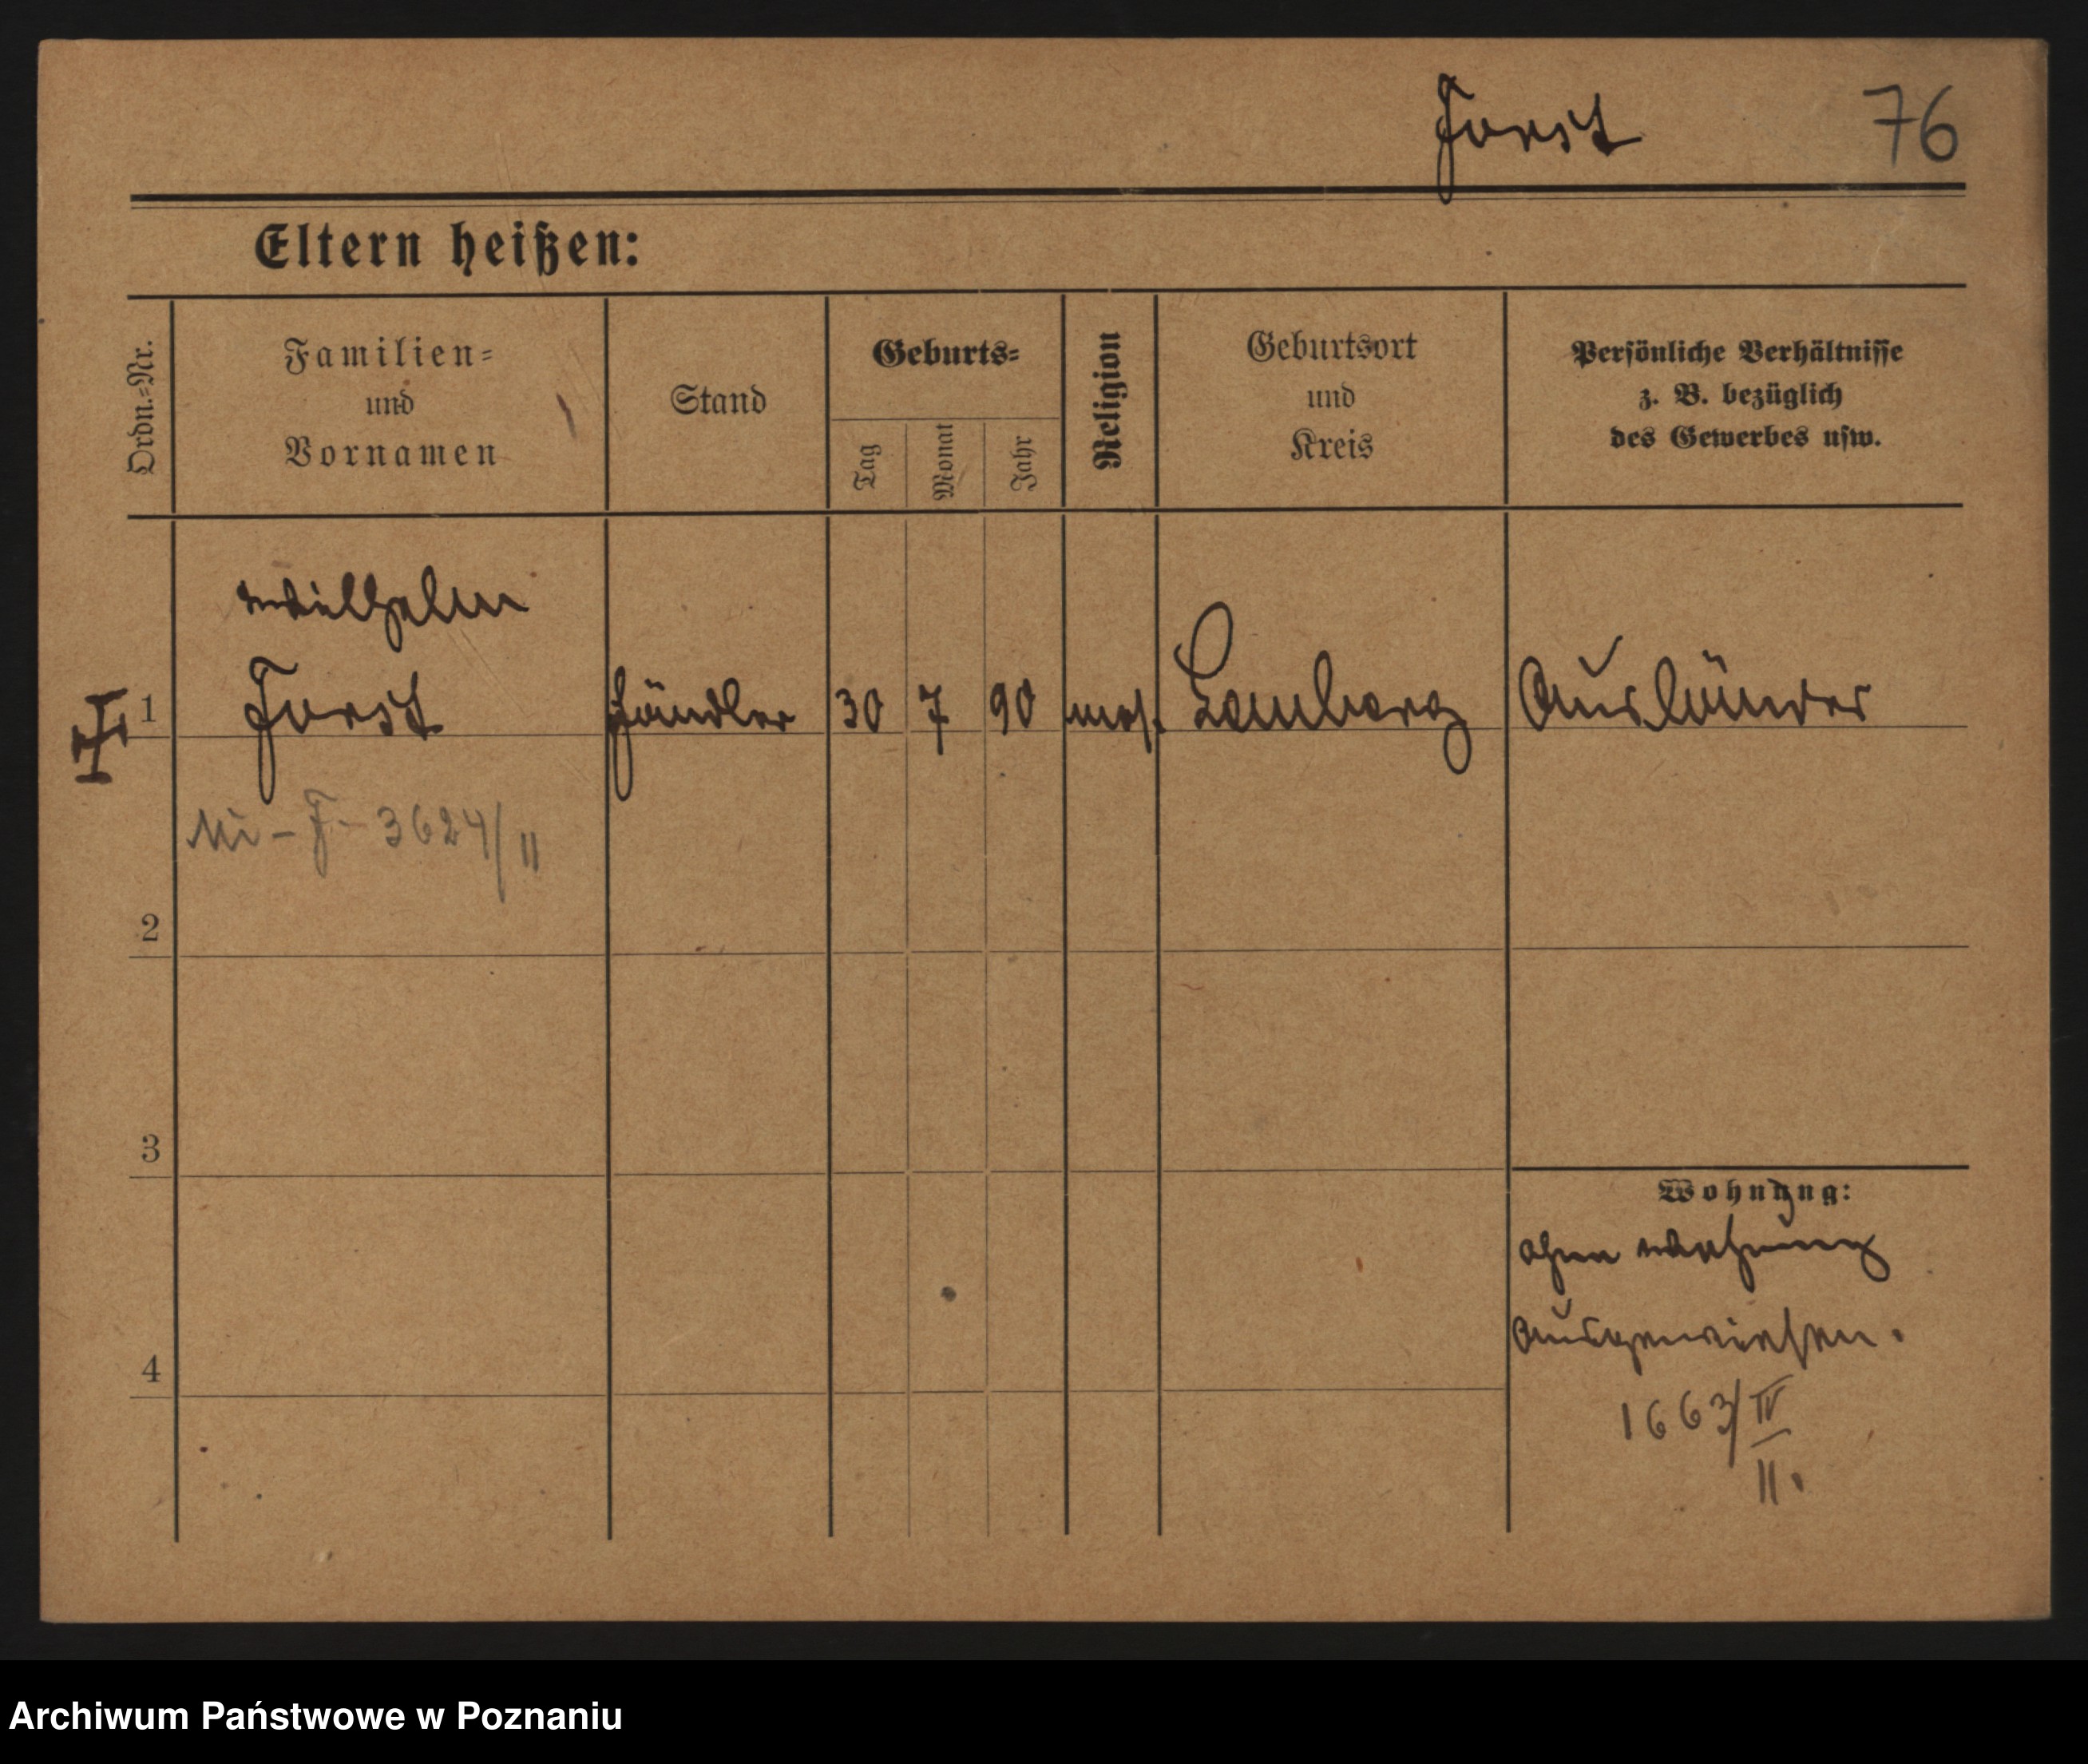 Forst 76
Eltern heißen:
Ordn.-Nr.
Familien-
und
Vornamen
Stand
Geburts-
Tag
Monat
Jahr
Religion
Geburtsort
und
Kreis
Persönliche Verhältnisse
z. B. bezüglich
des Gewerbes usw.
Wilhelm
1 Forst Händler 30 7 90 mos. Lemberg Ausländer
Mi-F-3624/II
2
3
Wohnung:
ohne Wohnung
ausgewiesen.
4
1663/IV
II.
Archiwum Państwowe w Poznaniu